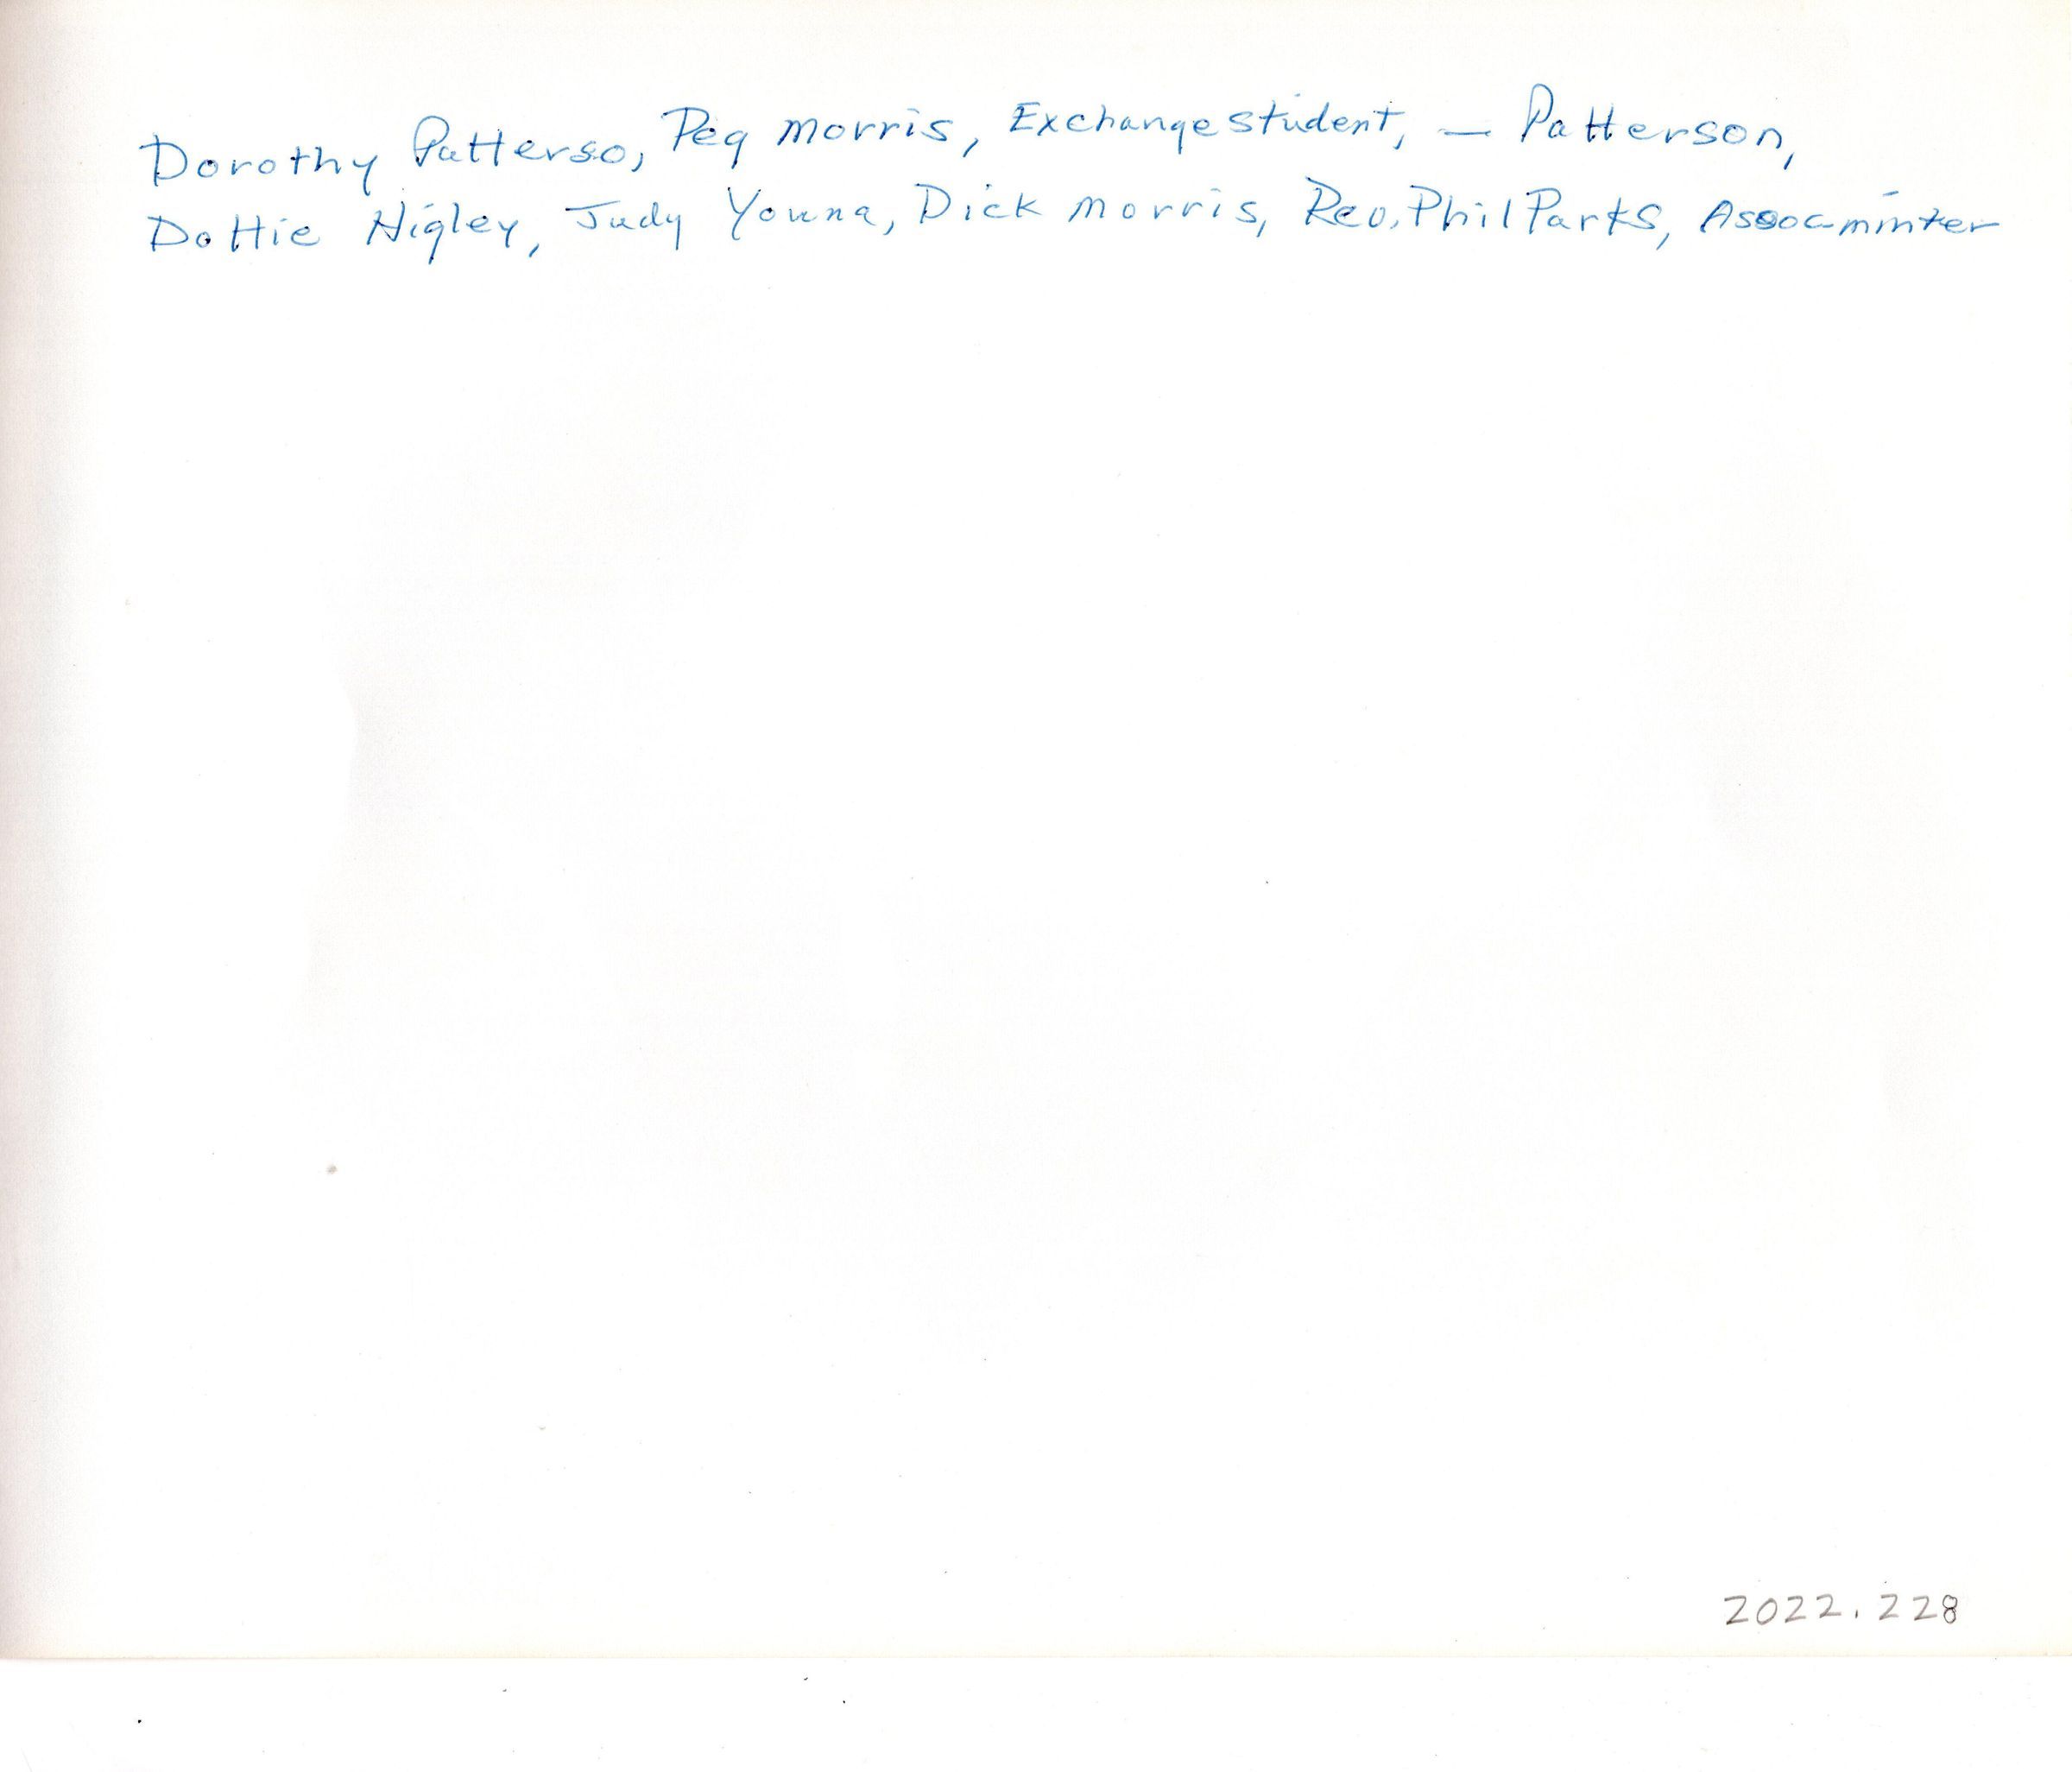 Dorothy Patterso, Peg Morris, Exchange student, — Patterson,
Dottie Higley, Judy Young, Dick Morris, Rev. Phil Parks, Assoc minter
2022.228